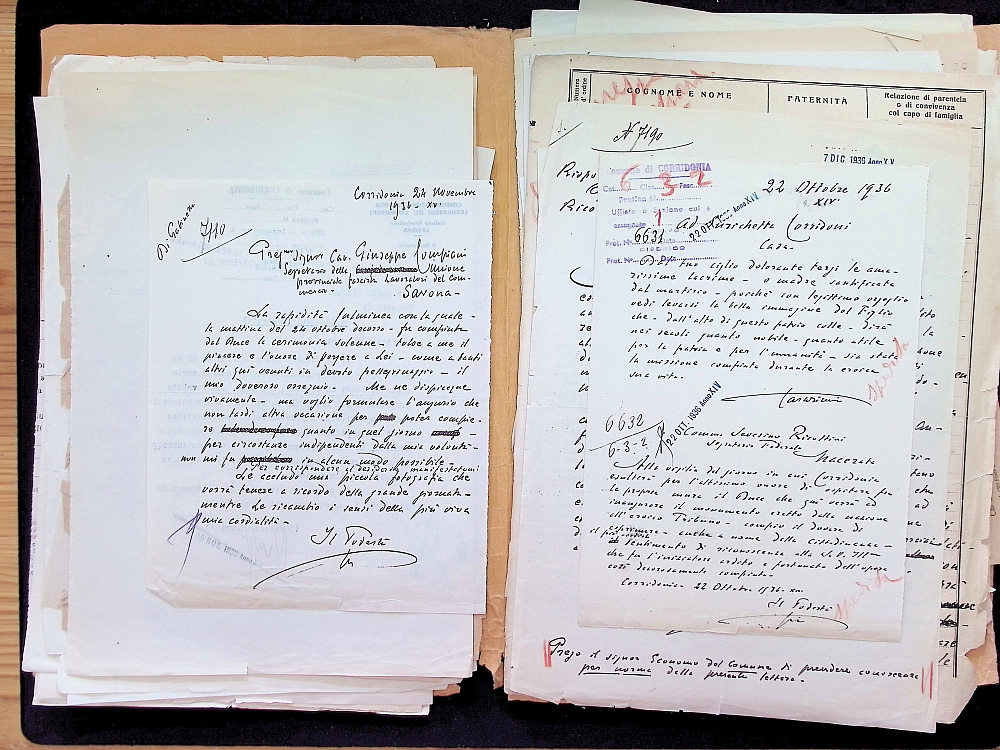 Corridonia 24 Novembre
1936 - XV.
Di Gabinetto
7110
Preg.mo Signor Cav. Giuseppe Pompiani
Segretario della Unione
provinciale fascista Lavoratori del Com-
mercio -
Savona -
La rapidità fulminea con la quale -
la mattina del 24 ottobre decorso - fu compiuta
dal Duce la cerimonia solenne - tolse a me il
piacere e l'onore di porgere a Lei - come a tanti
altri qui venuti in devoto pellegrinaggio - il
mio doveroso ossequio - Me ne dispiacque
vivamente - ma voglio formulare l'augurio che
non tardi altra occasione per poter compie-
re quanto in quel giorno
per circostanze indipendenti dalla mia volontà -
non mi fu in alcun modo possibile -
Per corrispondere al desiderio manifestatomi
Le accludo una piccola fotografia che
vorrà tenere a ricordo della grande giornata -
mentre Le ricambio i sensi della più viva
cordialità -
Il Podestà
Numero
d'ordine
COGNOME E NOME
PATERNITÀ
Relazione di parentela
o di convivenza
col capo di famiglia
N 7190
7 DIC 1936 Anno XV
Comune di CORRIDONIA
Cat. Clas. Fasc.
6 3 2
Pratica N.
Ufficio o Sezione cui è
assegnata
Prot. N. 6631 Data
Prot. N. Data
22 OTT 1936 Anno XIV
22 Ottobre 1936
XIV.
Ad Enrichetta Corridoni
Casa -
Dal tuo ciglio dolorante tergi le ama-
rissime lacrime - o madre santificata
dal martirio - poichè con legittimo orgoglio
vedi levarsi la bella immagine del Figlio
che - dall'alto di questo patrio colle - dirà
nei secoli quanto nobile - quanto utile
per la patria e per l'umanità - sia stata
la missione compiuta durante la eroica
sua vita.
spedita
6632
6-3-2
22 OTT 1936 Anno XIV
Comm. Severino Riccottini
Segretario Federale
Macerata
Alla vigilia del giorno in cui Corridonia
esulterà per l'altissimo onore di ospitare fra
le proprie mura il Duce che qui verrà ad
inaugurare il monumento eretto dalla nazione
all'eroico Tribuno - compio il dovere di
esprimere - anche a nome della cittadinanza -
il più
sentimento di riconoscenza alla S.V. Ill.ma
che fu l'iniziatore ardito e fortunato dell'opera
così decorosamente compiuta -
Corridonia - 22 Ottobre 1936 - XIV
Il Podestà
spedita
Prego il signor Economo del Comune di prendere conoscenza
per norma della presente lettera -